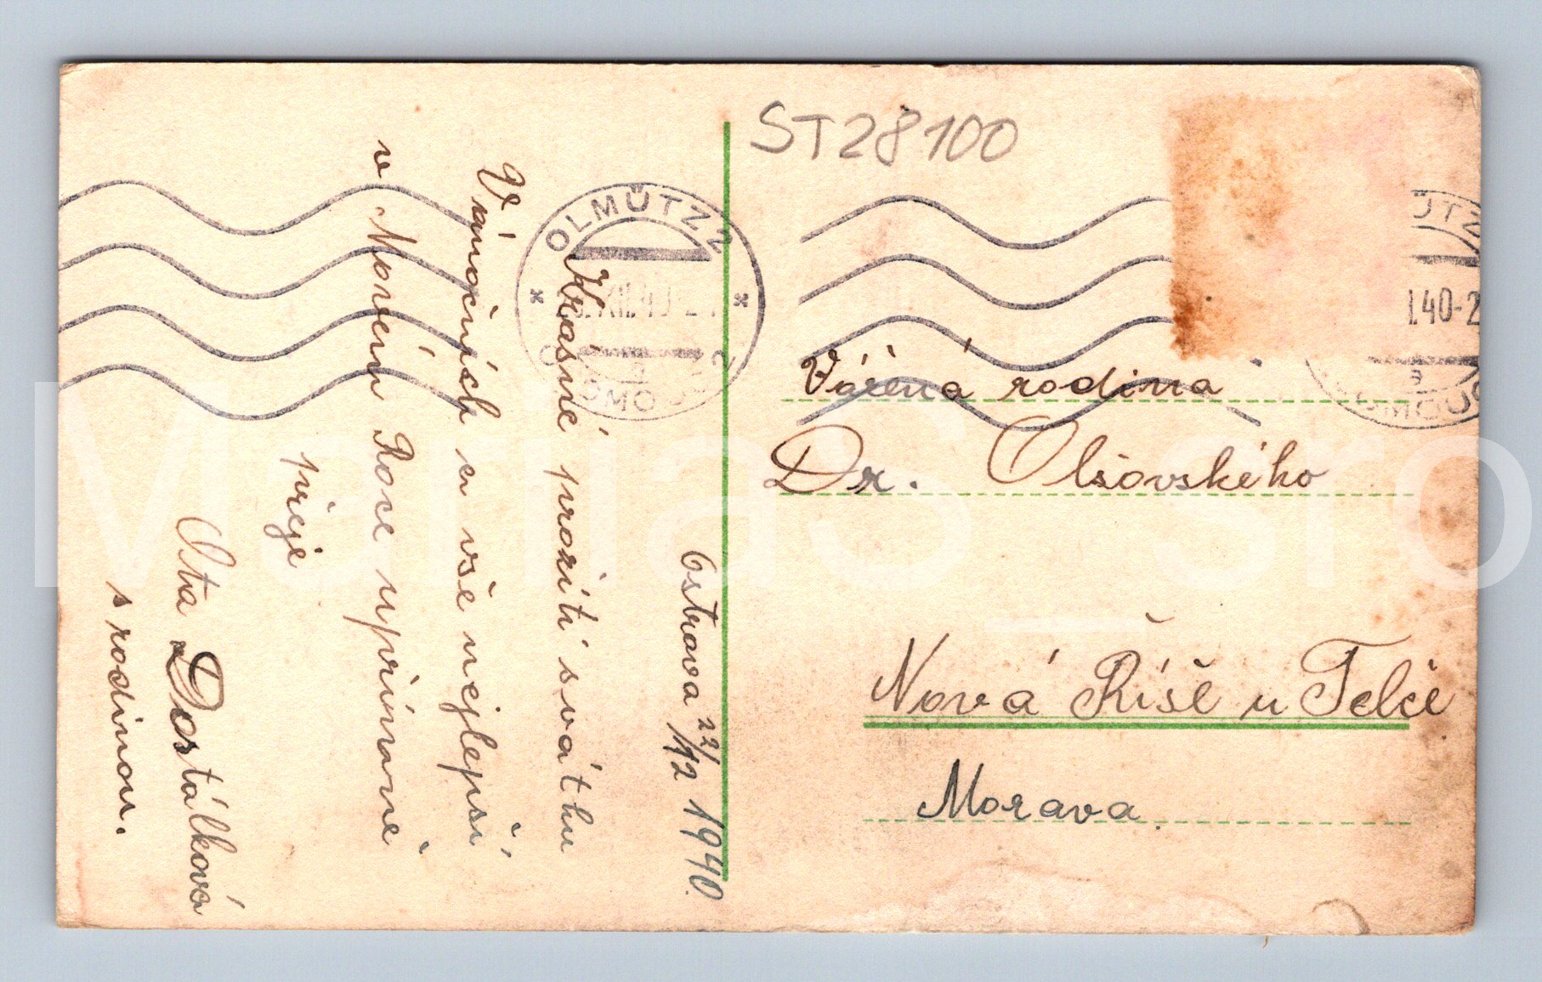 ST28100
OLMÜTZ 2
OLOMOUC 2
ÜTZ
.40-2
OMOUC
Ostrava 22/12 1940.
Krásné prožití svátků
Vánočních a vše nejlepší
v Novém Roce upřímně
přeje
Ota Dostálková
s rodinou.
Vážená rodina
Dr. Olšovského
Nová Říše u Telče
Morava.
MartiaS_sro